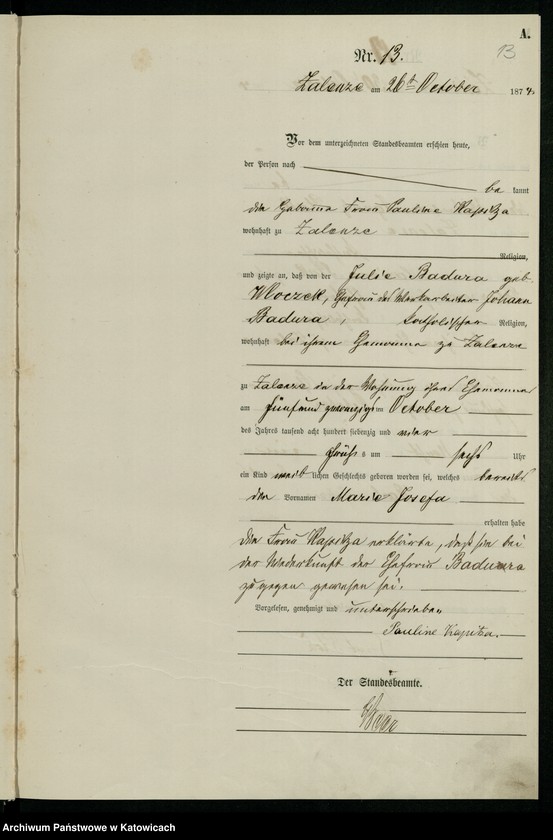 A.
13
Nr. 13.
Zalenze am 26t October 1874.
Vor dem unterzeichneten Standesbeamten erschien heute,
der Person nach
be kannt
die Frau Pauline Kapitza
wohnhaft zu Zalenze
Religion,
und zeigte an, daß von der Julie Badura geb.
Wloczek, Ehefrau des Werkarbeiter Johann
Badura, katholischer Religion,
wohnhaft bei ihrem Ehemanne zu Zalenze
zu Zalenze in der Wohnung ihres Ehemannes
am fünf und zwanzigsten October
des Jahres tausend acht hundert siebenzig und vier
früh s um sechs Uhr
ein Kind weib lichen Geschlechts geboren worden sei, welches bereits
den Vornamen Marie Josefa
erhalten habe
Die Frau Kapitza erklärte, daß sie bei
der Niederkunft der Ehefrau Badura
zugegen gewesen sei.
Vorgelesen, genehmigt und unterschrieben
Pauline Kapitza.
Der Standesbeamte.
Archiwum Państwowe w Katowicach